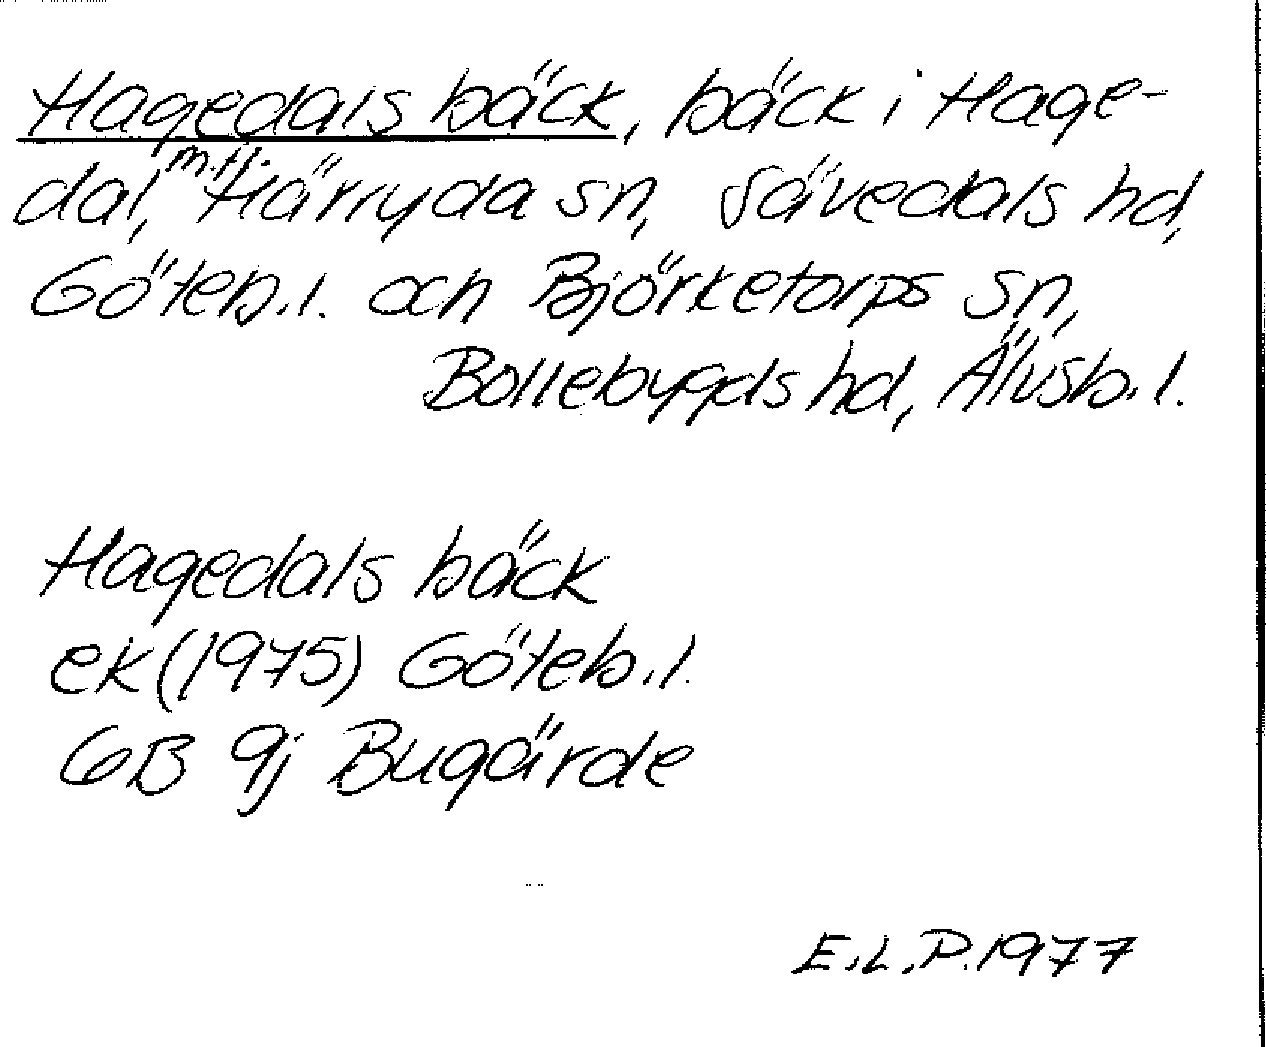 Hagedals bäck, bäck i Hage-
dal, m.fl. Härryda sn, Sävedals hd,
Göteb.l. och Björketorps sn,
Bollebygds hd, Älvsb.l.
Hagedals bäck
ek (1975) Göteb.l.
6B 9j Bugärde
E.L.P. 1977